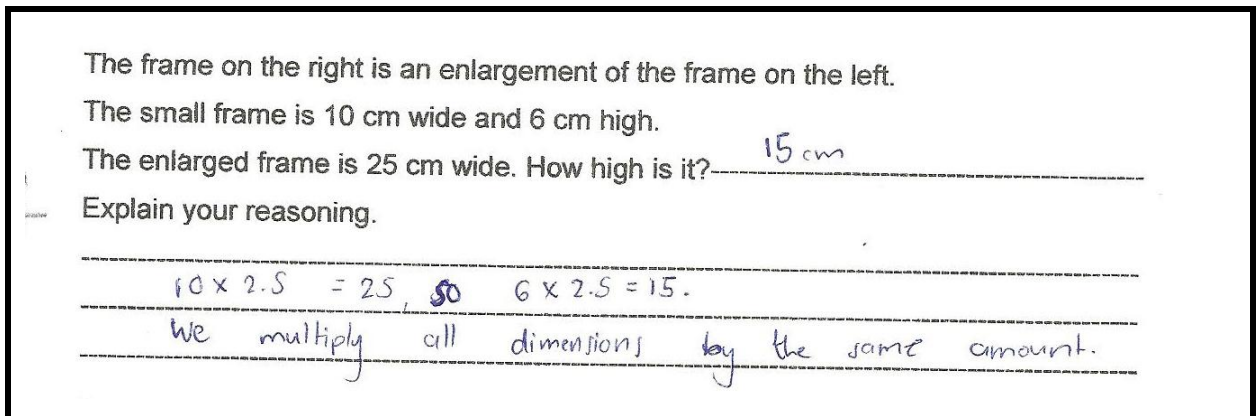 The frame on the right is an enlargement of the frame on the left.
The small frame is 10 cm wide and 6 cm high.
The enlarged frame is 25 cm wide. How high is it? 15 cm
Explain your reasoning.
10 x 2.5 = 25, so 6 x 2.5 = 15.
We multiply all dimensions by the same amount.